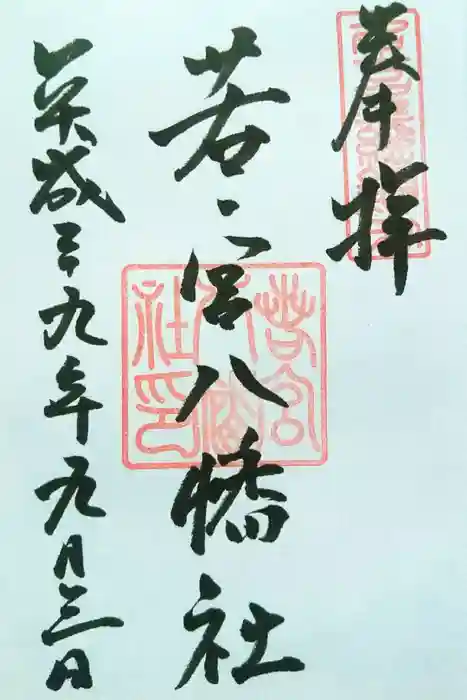 奉拝
若宮八幡社
平成二十九年九月三日
若宮八幡社印